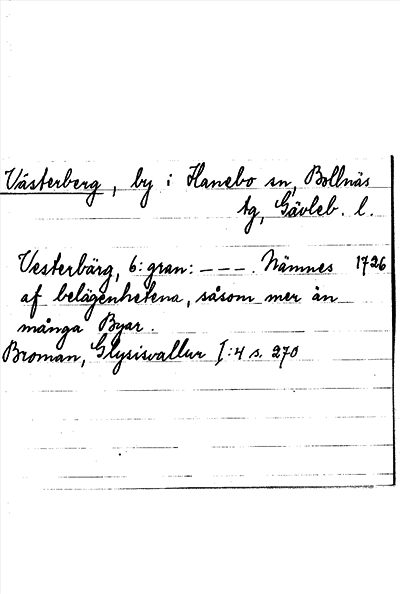 Västerberg, by i Hanebo sn, Bollnäs
tg, Gävleb. l.
Vesterbärg, 6: gran: – – –. Nämnes 1726
af belägenhetena, såsom mer än
många Byar.
Broman, Glysisvallur I:4 s. 270